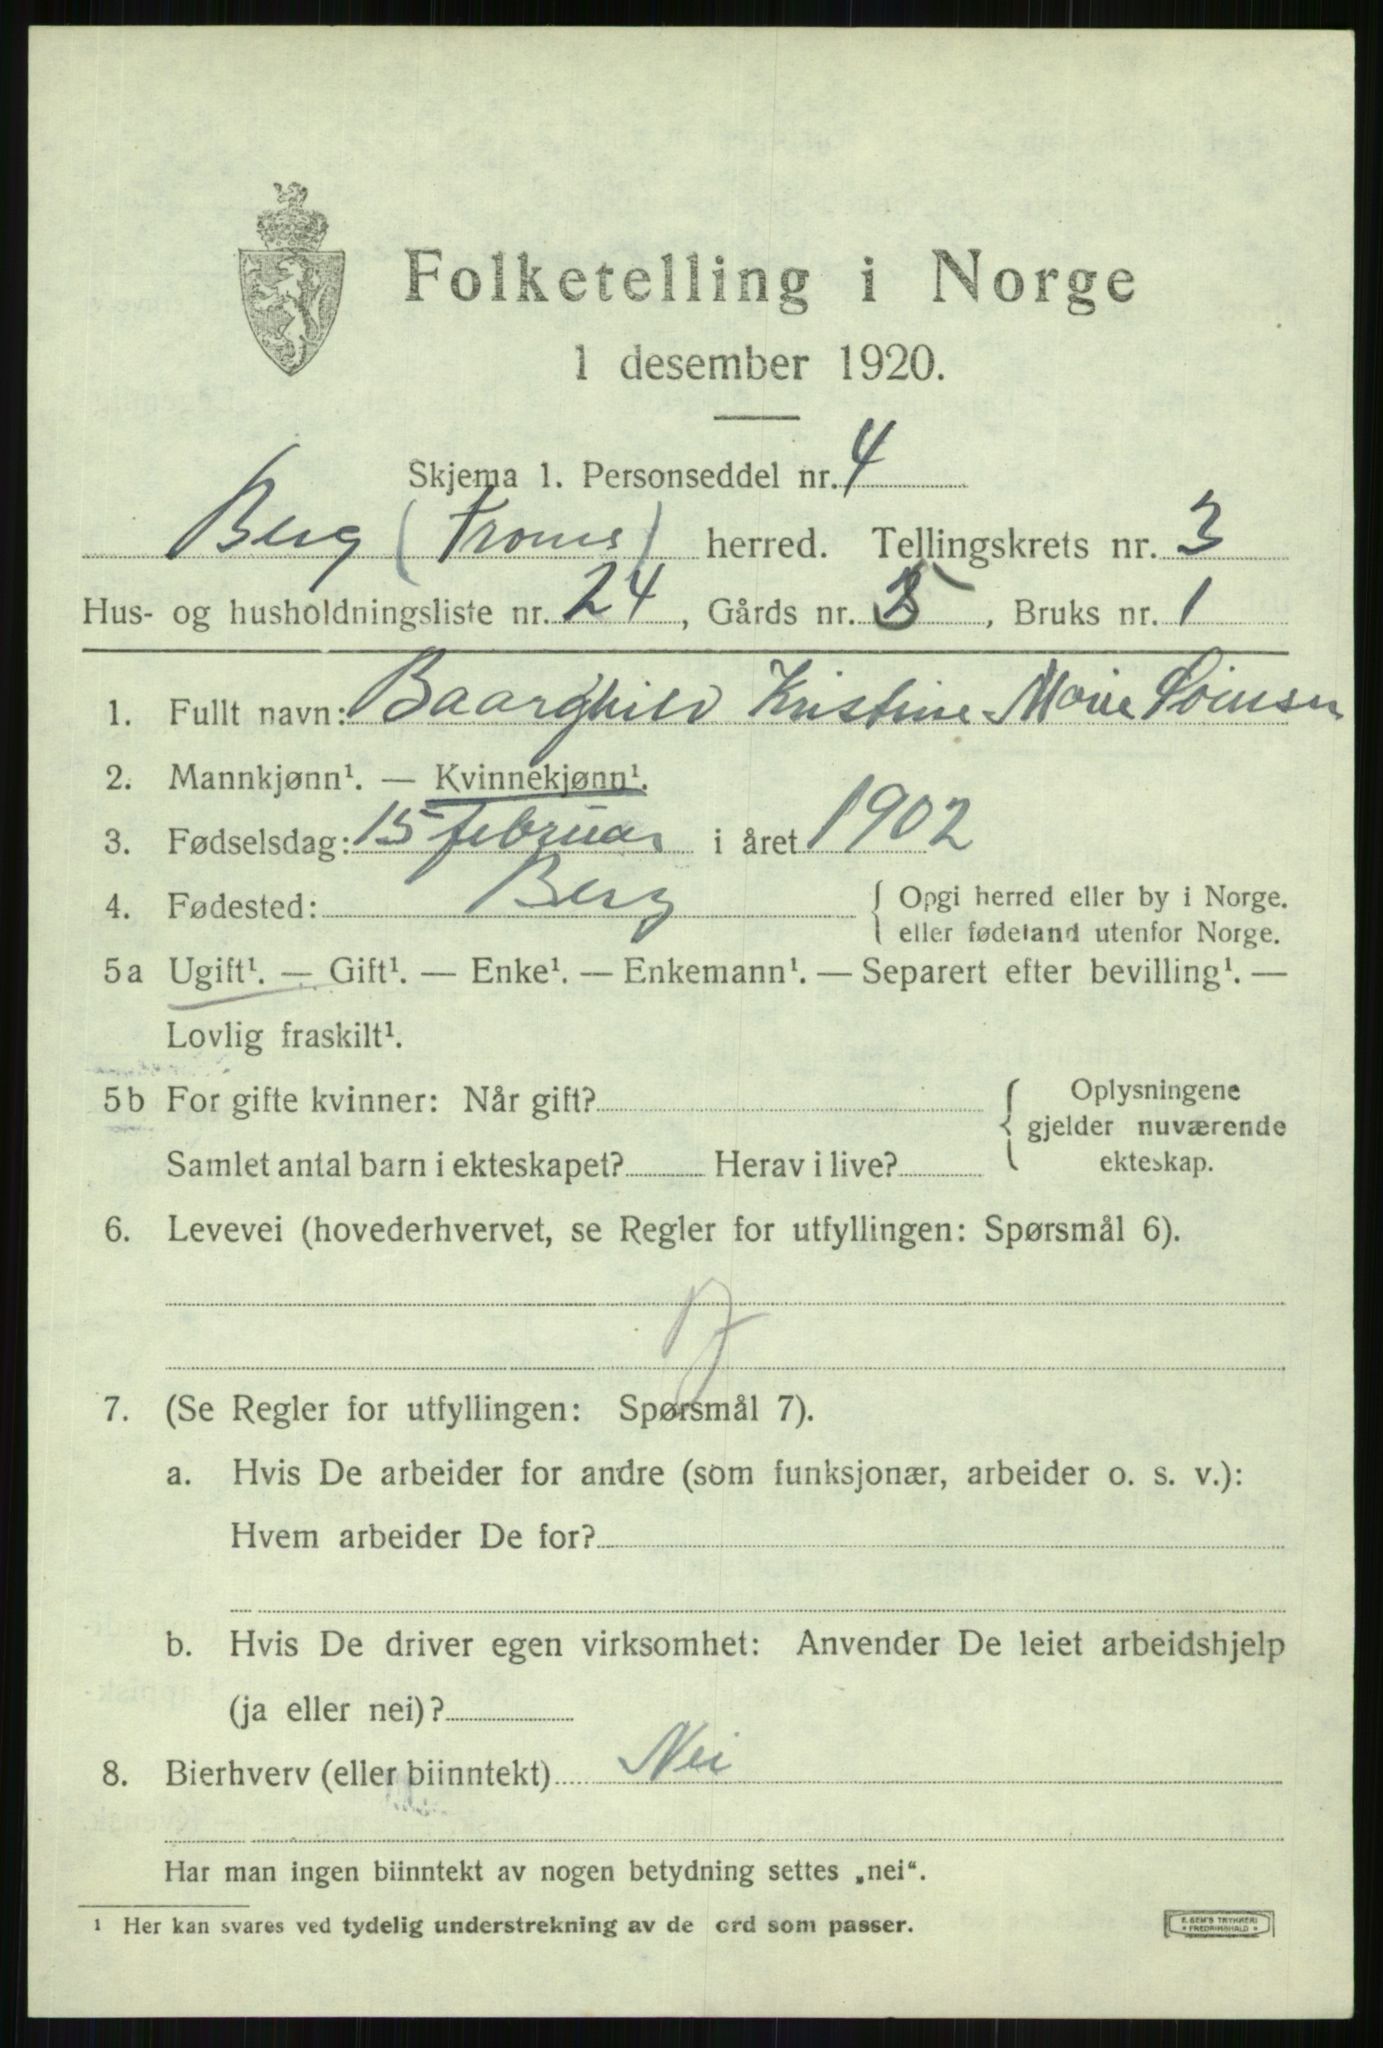 Folketelling i Norge
1 desember 1920.
Skjema 1. Personseddel nr. 4
Berg (Troms) herred. Tellingskrets nr. 3
Hus- og husholdningsliste nr. 24, Gårds nr. , Bruks nr. 1
1. Fullt navn: Baarghild Kristine Marie
2. Mannkjønn¹. — Kvinnekjønn¹.
3. Fødselsdag: 15 februar i året 1902
4. Fødested: Berg { Opgi herred eller by i Norge.
eller fødeland utenfor Norge.
5a Ugift¹. — Gift¹. — Enke¹. — Enkemann¹. — Separert efter bevilling¹. —
Lovlig fraskilt¹.
5b For gifte kvinner: Når gift? { Oplysningene
gjelder nuværende
Samlet antal barn i ekteskapet? Herav i live? ekteskap.
6. Levevei (hovederhvervet, se Regler for utfyllingen: Spørsmål 6).
7. (Se Regler for utfyllingen: Spørsmål 7).
a. Hvis De arbeider for andre (som funksjonær, arbeider o. s. v.):
Hvem arbeider De for?
b. Hvis De driver egen virksomhet: Anvender De leiet arbeidshjelp
(ja eller nei)?
8. Bierhverv (eller biinntekt) Nei
Har man ingen biinntekt av nogen betydning settes „nei“.
¹ Her kan svares ved tydelig understrekning av de ord som passer.
E. SEM'S TRYKKERI
* FREDRIKSHALD *